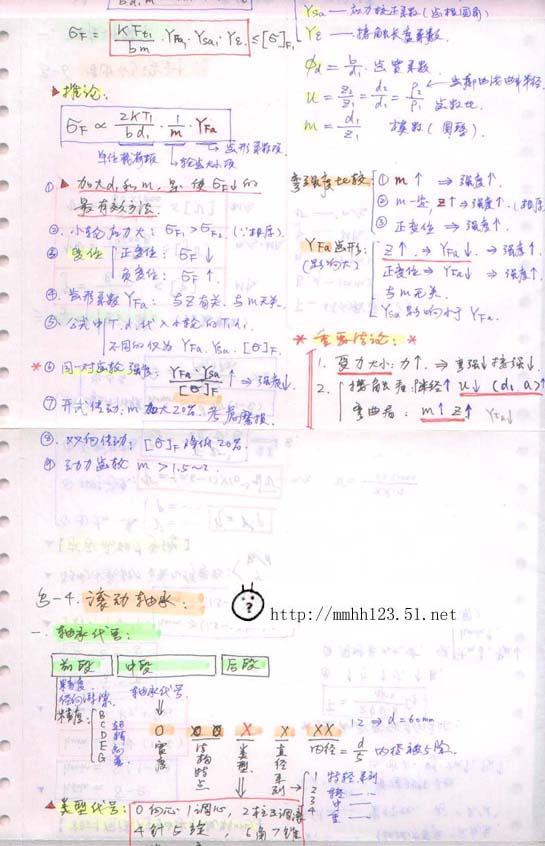 σF = KFt1/bm · YFa1 · YSa1 · Yε ≤ [σ]F1
YSa — 应力校正系数(齿根圆角)
Yε — 接触长度系数.
φd = b/d1 . 齿宽系数.
u = z2/z1 = d2/d1 = ρ2/ρ1 齿数比
m = d1/z1 模数(圆整)
▲推论:
σF ∝ 2KT1/bd1 · 1/m · YFa
→ 齿形系数项
▲ ① 加大d1和m, 是使σF↓的
最有效方法.
②. 小轮应力大: σF1 > σF2
③ 变位 正变位: σF↓
负变位: σF↑
④. 齿形系数YFa: 与Z有关, 与m无关.
⑤. 公式中T、d1代入小轮的T1d1.
不同的仅为YFa、YSa、[σ]F
* ⑥ 同一对齿数强度: YFa·YSa/[σ]F ↑ ⇒ 强度↓
⑦ 开式传动: m加大20%. 考虑磨损.
⑧. 双向传动: [σ]F降低20%.
⑨ 动力齿轮 m > 1.5~2.
弯强度比较 ① m↑ ⇒ 强度↑.
② m一定, Z↑ ⇒ 强度↑.
③ 正变位 ⇒ 强度↑.
YFa齿形:
(影响大)
Z↑. ⇒ YFa↓. ⇒ 强度↑.
正变位 ⇒ YFa↓ ⇒ 强度↑.
与m无关.
YSa影响小于YFa.
* 重要结论: *
1. 受力大小: 力↑. ⇒ 弯强↓接强↓.
2. 接触看: 降径↑ u↓ (d1 a)↑
弯曲看: m↑ Z↑ YFa↓
-4. 滚动轴承:
http://mmhh123.51.net
一. 轴承代号:
前段 中段 后段
径向游隙.
轴承代号.
精度: B C D E G
0 XX X X XX
宽度
结构特点
类型
直径系列
12 ⇒ d=60mm
内径 = d/5 内径被5除.
1 特轻系列
2 轻 — —
3 中 — —
4 重 — —
▲类型代号: 0向心 1调心, 2柱3调滚
4针5螺, 6角7锥